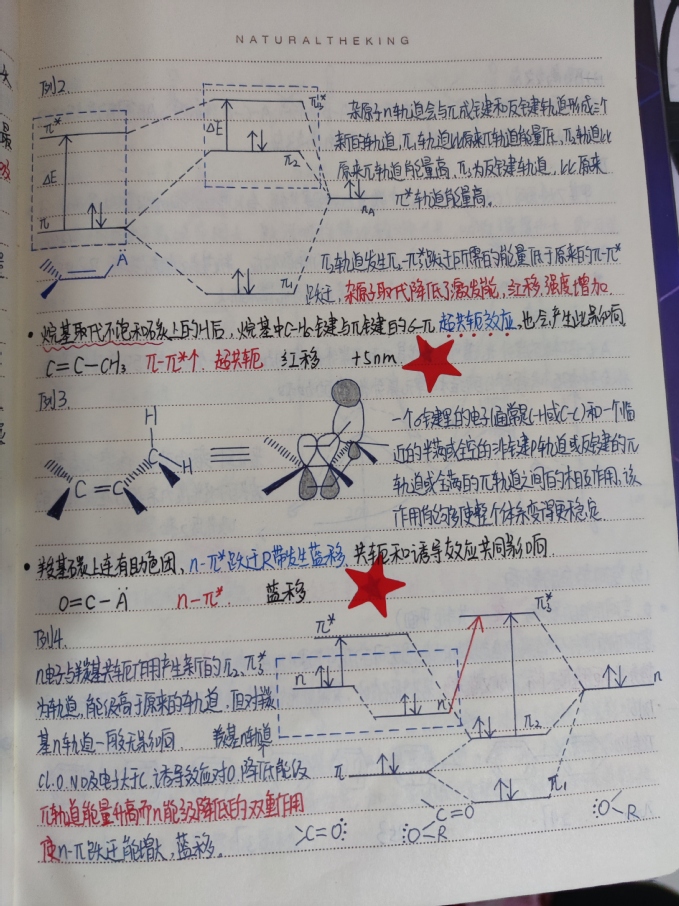 NATURALTHEKING
例2.
杂原子n轨道会与π成键和反键轨道形成三个
新的轨道,π₁轨道比原来π轨道能量低,π₂轨道比
原来π轨道能量高,π₃为反键轨道,比原来
π*轨道能量高。
π* ΔE π
ΔE π₃* π₂ nA π₁
Ä
π₂轨道发生π₂-π₃*跃迁所需的能量低于原来的π-π*
跃迁,杂原子取代降低了激发能,红移,强度增加
• 烷基取代不饱和碳上的H后,烷基中C-Hσ键与π键的σ-π超共轭效应,也会产生此影响
C=C-CH₃ π-π*个. 超共轭 红移 +5nm
例3.
H
H
C=C C
一个σ键里的电子(通常是C-H或C-C)和一个临
近的半满或全空的非键p轨道或反键的π
轨道或全满的π轨道之间的相互作用,该
作用能够使整个体系变得更稳定.
• 羰基碳上连有助色团、n-π*跃迁R带发生蓝移. 共轭和诱导效应共同影响.
O=C-Ä n-π*. 蓝移
例4.
n电子与羰基共轭作用产生新的π₂、π₃*
为轨道,能级高于原来的轨道,但对羰
基n轨道一般无影响. 羰基n轨道
Cl.O.N吸电子大于C,诱导效应对O.降低能级
π轨道能量升高而n能级降低的双重作用
使n-π跃迁能增大,蓝移。
π* n π
n
π₃* π₂ π₁
n
C=O
C=O
O R
O R